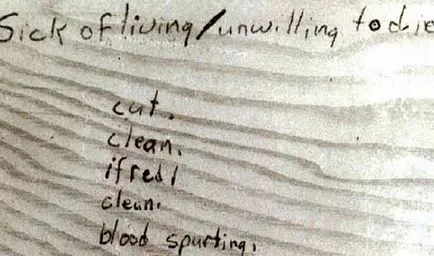 Sick of living/unwilling to die
cut.
clean.
if red /
clean.
blood spurting,